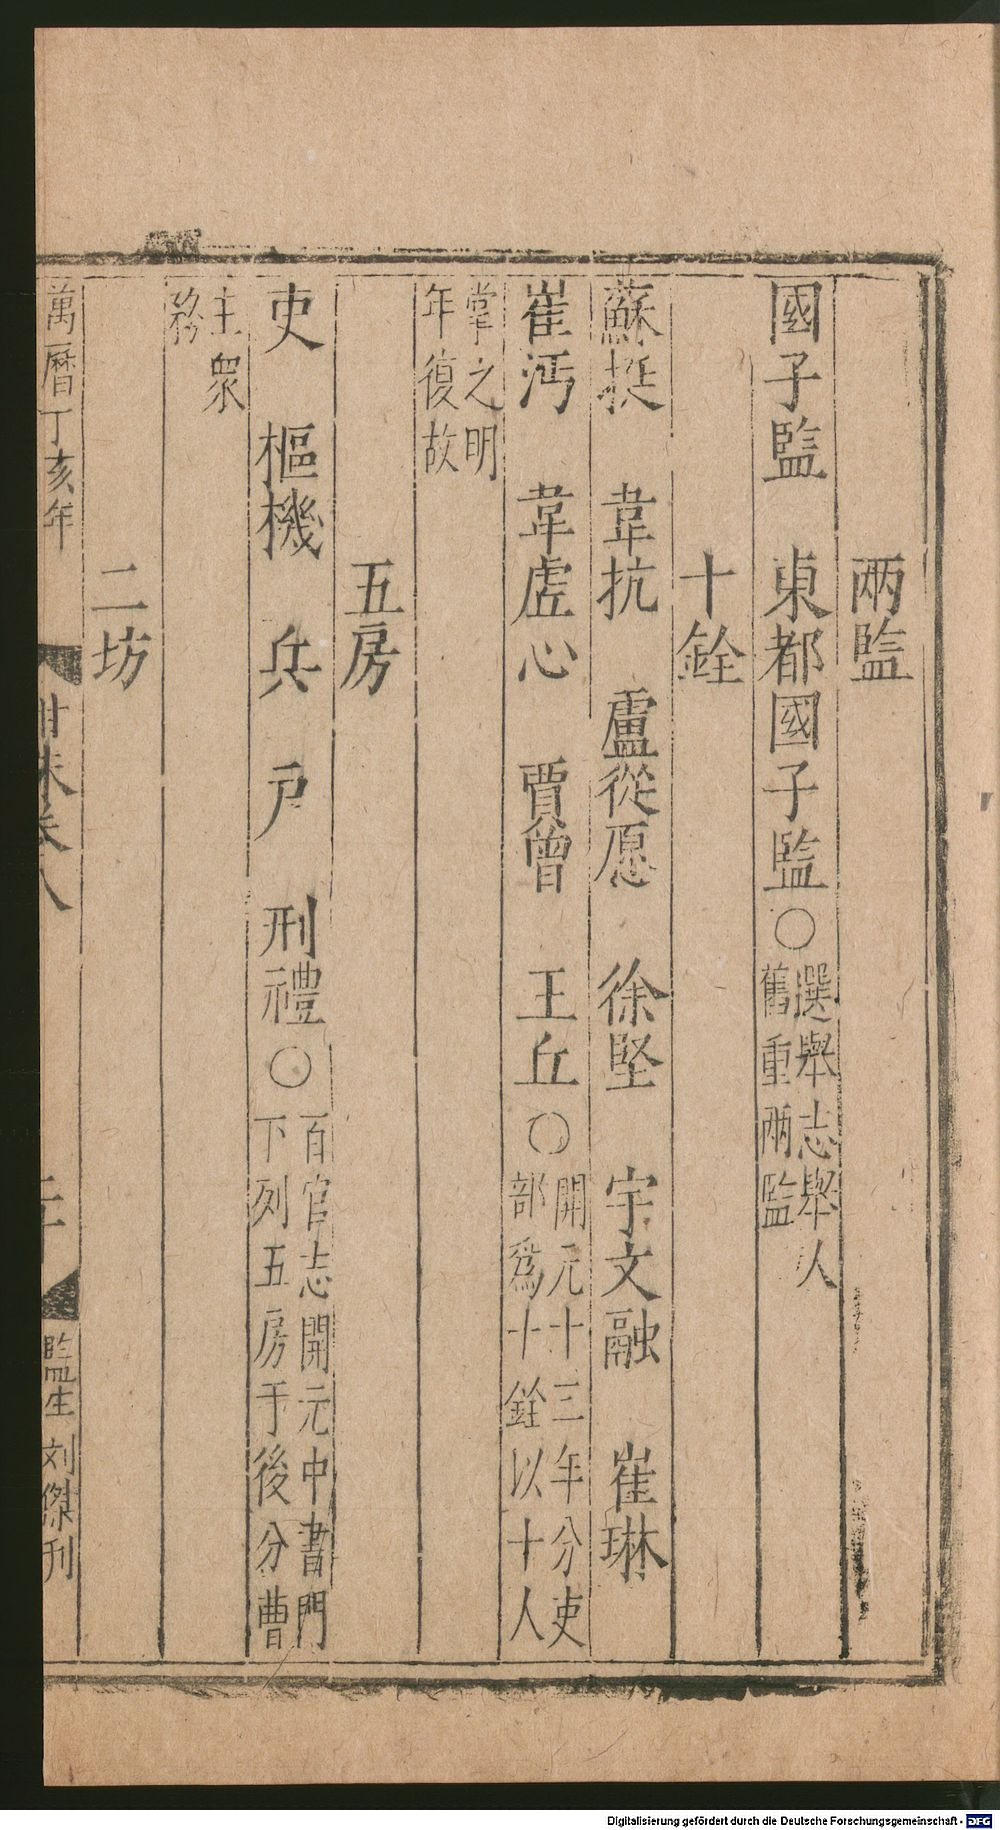 兩監
國子監　東都國子監○選舉志舉人
舊重兩監
十銓
蘇挺　韋抗　盧從愿　徐堅　宇文融　崔琳
崔沔　韋虛心　賈曾　王丘○開元十三年分吏
部爲十銓以十人
掌之明
年復故
五房
吏　樞機　兵　戶　刑禮○百官志開元中書門
下列五房于後分曹
主眾
務
二坊
萬曆丁亥年
卷八
監生刘傑刊
Digitalisierung gefördert durch die Deutsche Forschungsgemeinschaft - DFG